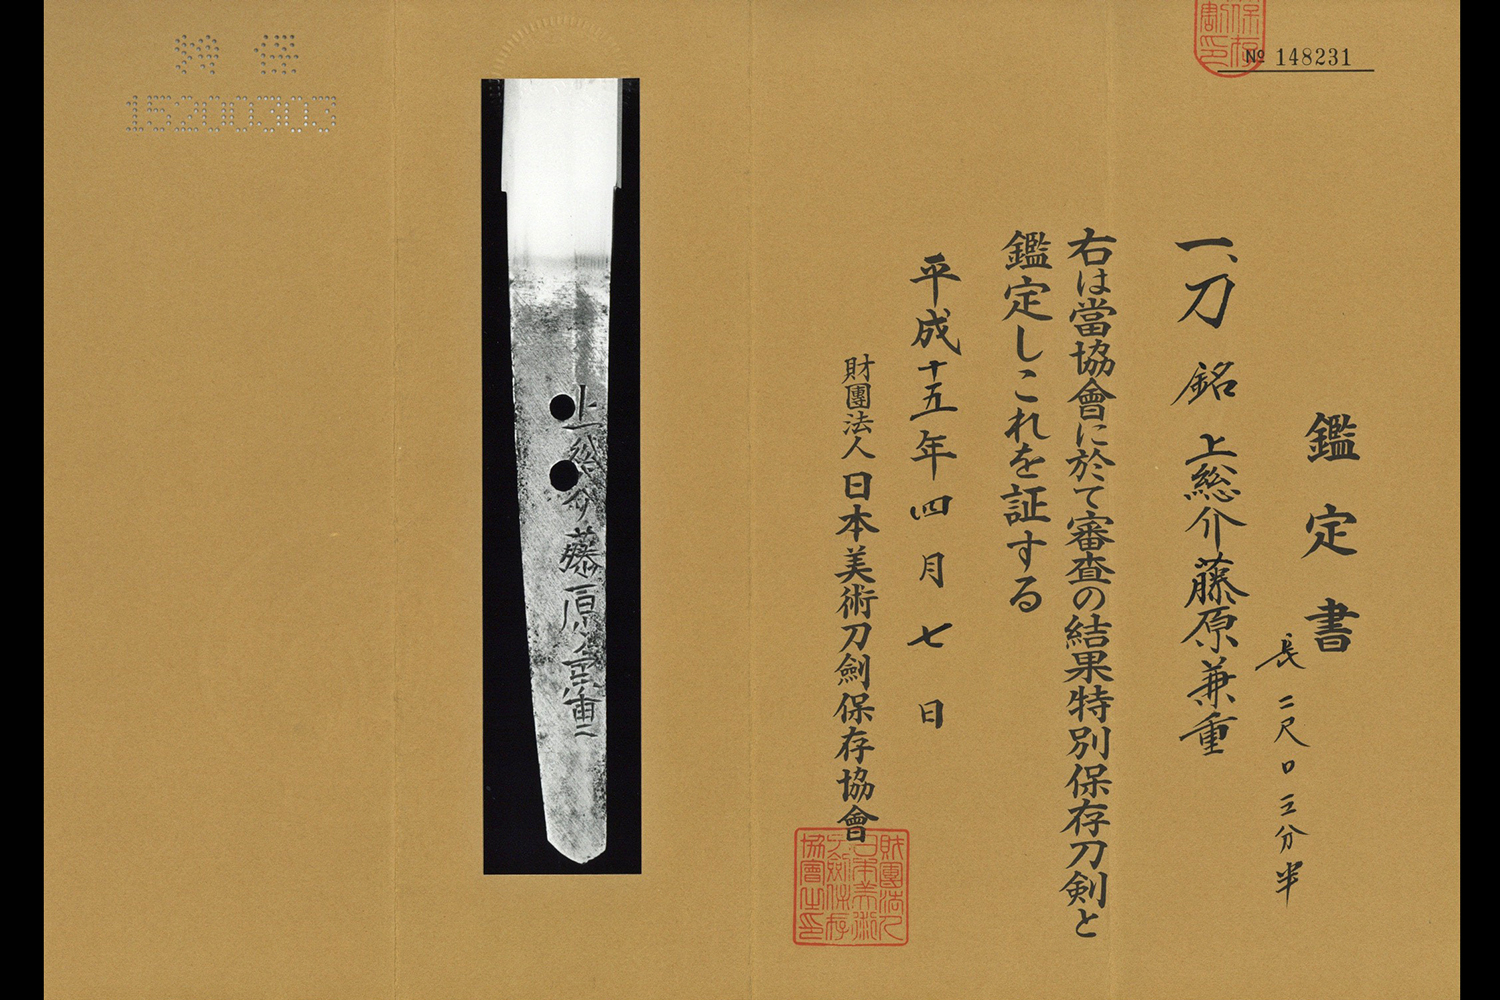 № 148231
鑑定書
長二尺〇三分半
一、刀 銘 上総介藤原兼重
右は當協會に於て審査の結果特別保存刀剣と
鑑定しこれを証する
平成十五年四月七日
財團法人日本美術刀劍保存協會
財團法人
日本美術
刀劍保存
協會之印
上総介藤原兼重
15200303